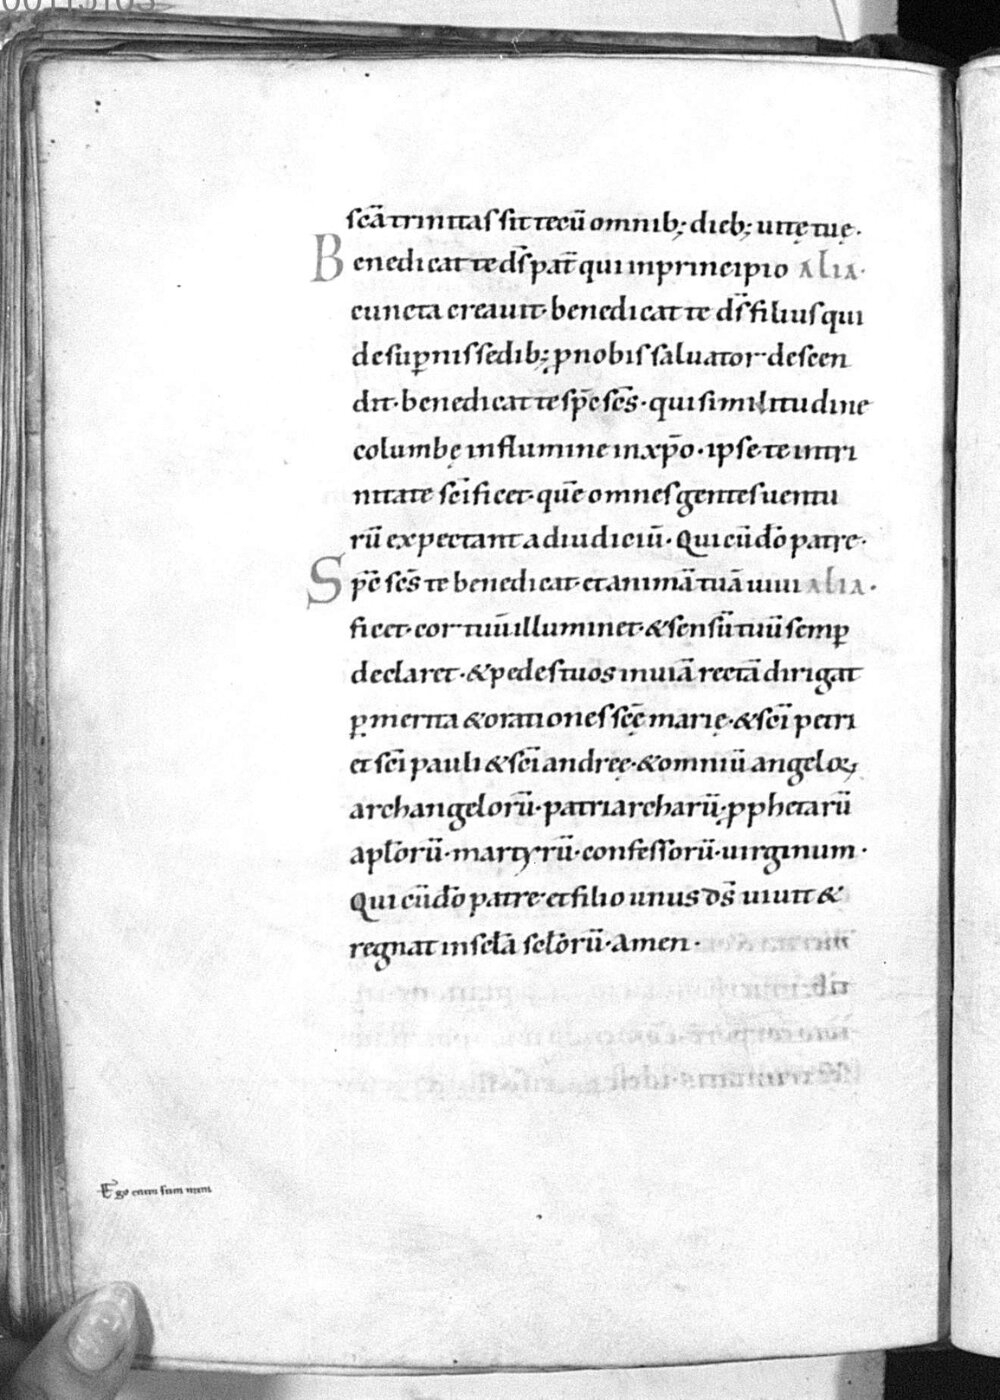 scā trinitas sit tecū omnib; dieb; uitę tuę.
Benedicat te ds̄ pat̄ qui in principio ALIA.
cuncta creauit. benedicat te ds̄ filius qui
de sup̱nis sedib; p̱ nobis saluator descen
dit. benedicat te sp̄c sc̄s. qui similitudine
columbę in flumine in xp̄o. ipse te intri
nitate sc̄ificet. quē omnes gentes uentu
rū expectant ad iudiciū. Qui cū dō patre.
Sp̄c sc̄s te benedicat. et animā tuā uiui ALIA.
ficet. cor tuū illuminet. & sensū tuū semp̱
declaret. & pedes tuos in uiā rectā dirigat
p̱ merita & orationes scę̄ marię. & sc̄i petri
et sc̄i pauli & sc̄i andreę. & omniū angeloꝝ
archangelorū. patriarcharū. ꝓphetarū
apl̄orū. martyrū. confessorū. uirginum.
Qui cū dō patre. et filio unus ds̄ uiuit &
regnat in scl̄a scl̄orū. Amen.
Ego enim sum